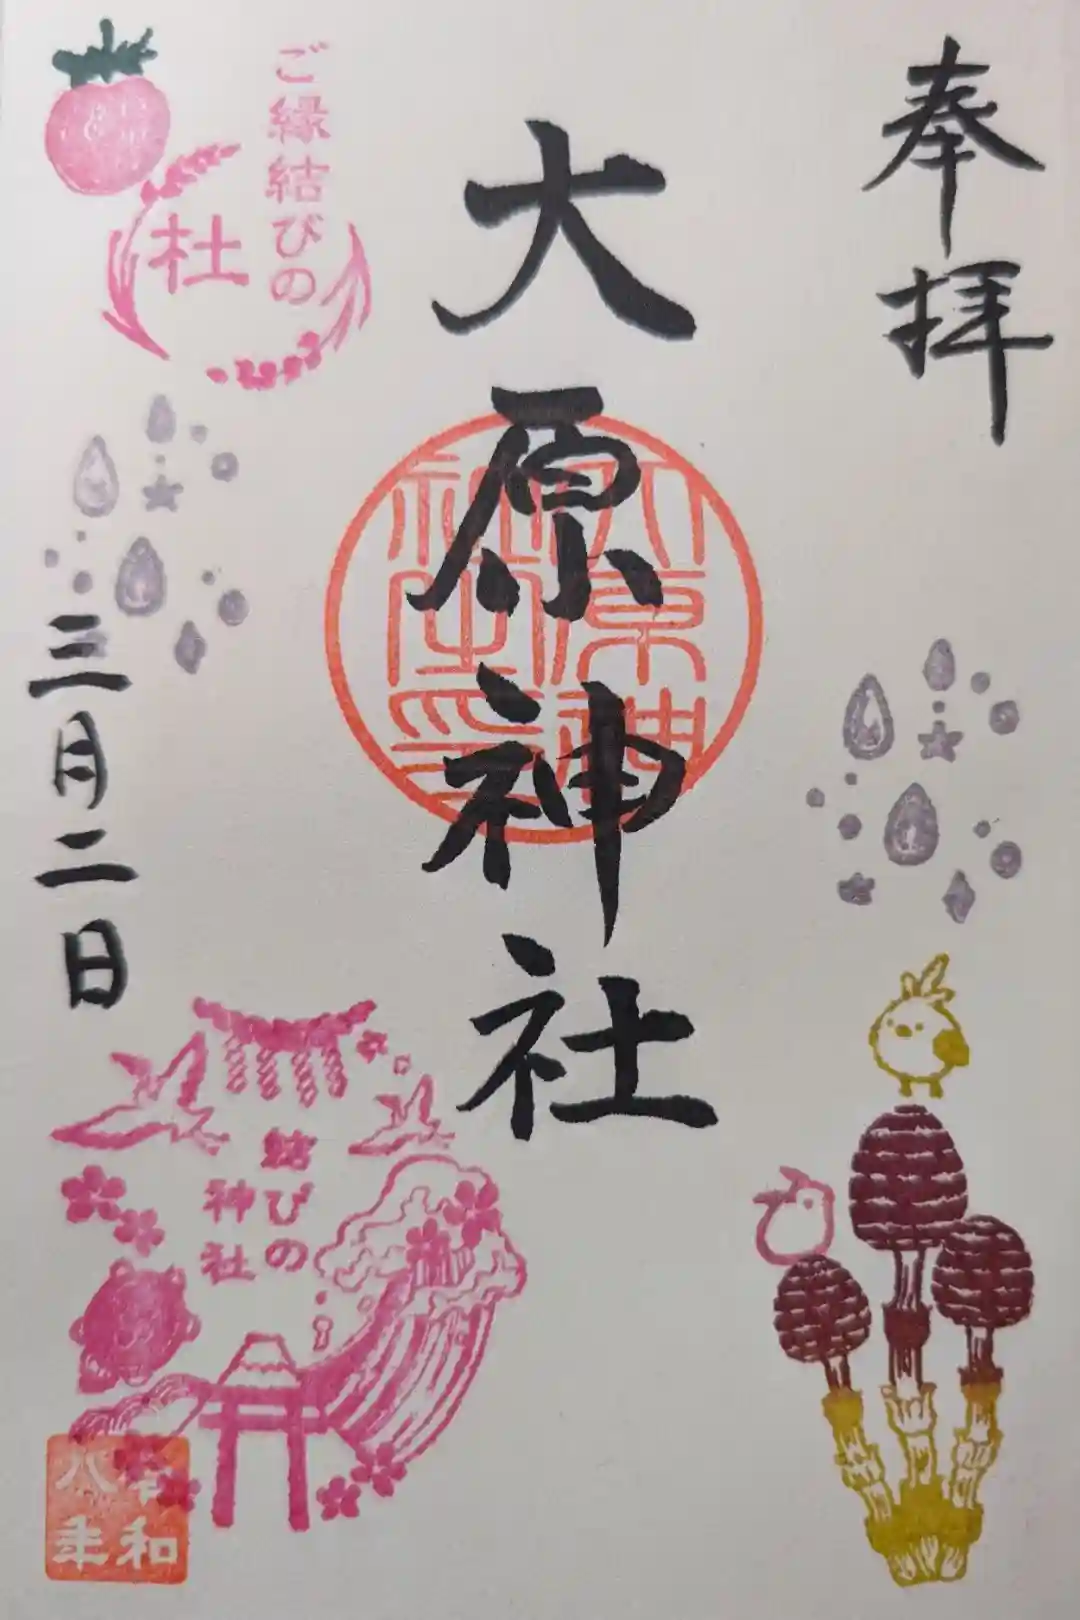 奉拝
大原神社
大原神社之印
ご縁結びの
杜
三月二日
結びの
神社
令和
八年